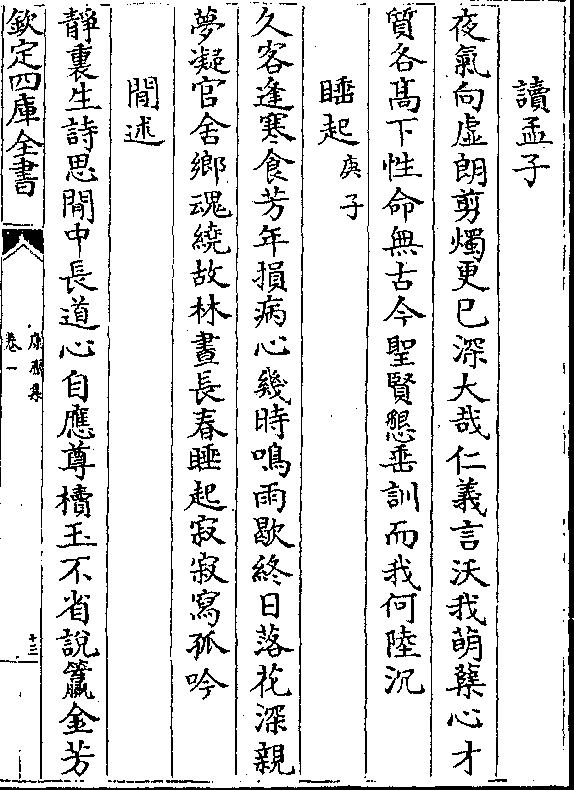 讀孟子
夜氣向虛朗剪燭更已深大哉仁義言沃我萌蘖心才
質各髙下性命無古今聖賢懇垂訓而我何陸沉
睡起庚子
久客逢寒食芳年損病心幾時鳴雨歇終日落花深親
夢凝官舍鄉魂繞故林晝長春睡起寂寂寫孤吟
閒述
靜裏生詩思閒中長道心自應尊櫝玉不省說籯金芳
欽定四庫全書
卷一
十三